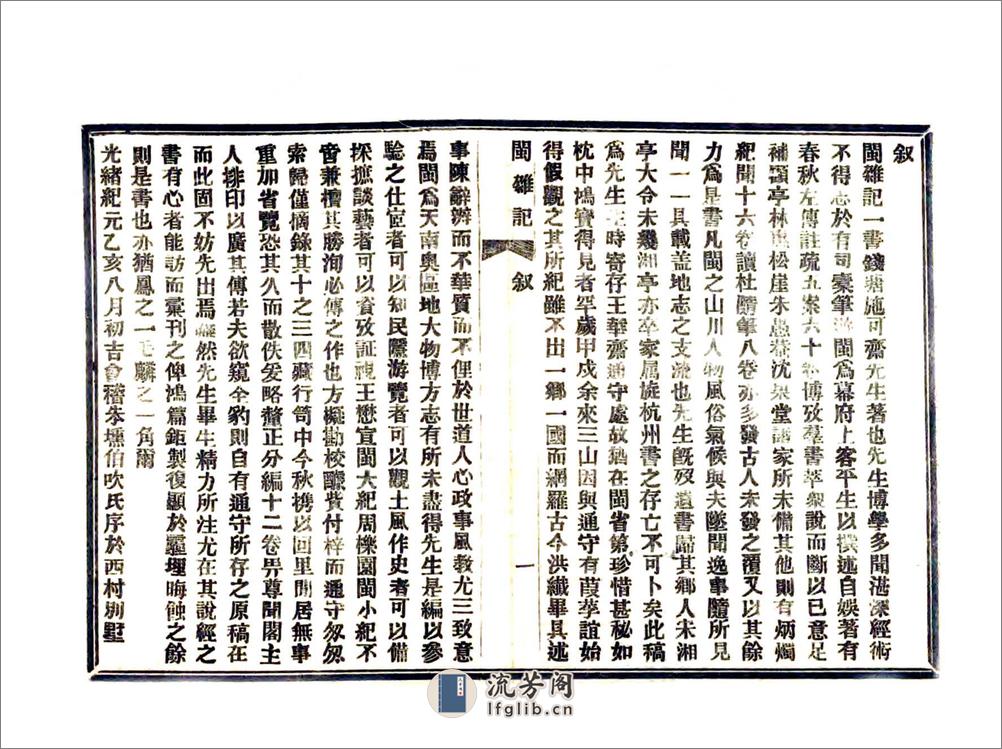 叙
閩雜記一書錢塘施可齋先生著也先生博學多聞湛深經術
不得志於有司橐筆游閩為幕府上客平生以撰述自娛著有
春秋左傳註疏五案六十卷博攷羣書萃眾說而斷以已意足
補顧亭林惠松崖朱愚菴沈果堂諸家所未備其他則有炳燭
紀聞十六卷讀杜隨筆八卷亦多發古人未發之覆又以其餘
力為是書凡閩之山川人物風俗氣候與夫墜聞逸事隨所見
聞一一具載盖地志之支流也先生旣歿遺書歸其鄉人朱湘
亭大令未幾湘亭亦卒家属旋杭州書之存亡不可卜矣此稿
為先生生時寄存王華齋通守處故猶在閩省第珍惜甚秘如
枕中鴻寶得見者罕歲甲戍余來三山因與通守有葭莩誼始
得假觀之其所紀雖不出一鄉一國而網羅古今洪纖畢具述
閩雜記 叙 一
事陳辭辨而不華質而不俚於世道人心政事風教尤三致意
焉閩為天南奥區地大物博方志有所未盡得先生是編以參
驗之仕宦者可以知民隱游覽者可以觀土風作史者可以備
採摭談藝者可以資攷証視王懋宣閩大紀周櫟園閩小紀不
啻兼擅其勝洵必傳之作也方擬勘校醵貲付梓而通守匆匆
索歸僅摘錄其十之三四藏行笥中今秋携以回里閒居無事
重加省覽恐其久而散佚爰略釐正分編十二卷畀尊聞閣主
人排印以廣其傳若夫欲窺全豹則自有通守所存之原稿在
而此固不妨先出焉雖然先生畢生精力所注尤在其說經之
書有心者能訪而彙刊之俾鴻篇鉅製復顯於霾堙晦蝕之餘
則是書也亦猶鳳之一毛麟之一角爾
光緒紀元乙亥八月初吉會稽朱壎伯吹氏序於西村別墅
流芳阁
lfglib.cn